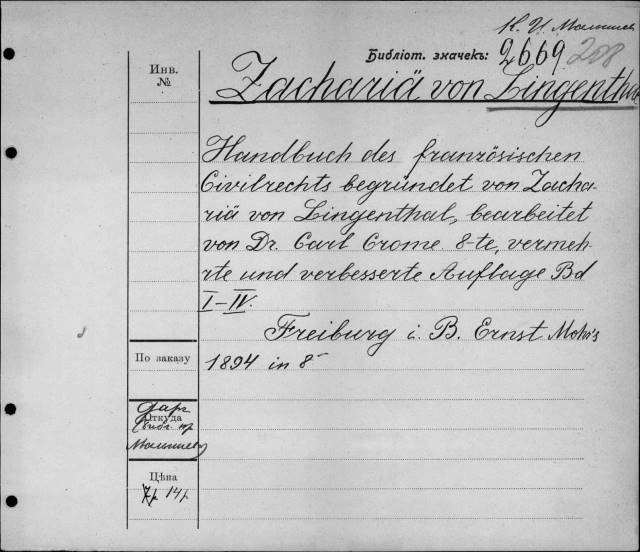 К. И. Малышев
Библіот. значекъ: 2669 208
Инв. №
Zachariä von Lingenthal
Handbuch des französischen
Civilrechts begründet von Zacha-
riä von Lingenthal, bearbeitet
von Dr. Carl Crome 8-te, vermeh-
rte und verbesserte Auflage Bd
I-IV.
Freiburg i. B. Ernst Mohr's
По заказу
1894 in 8°
Откуда
Малышева
Цѣна
14 р.